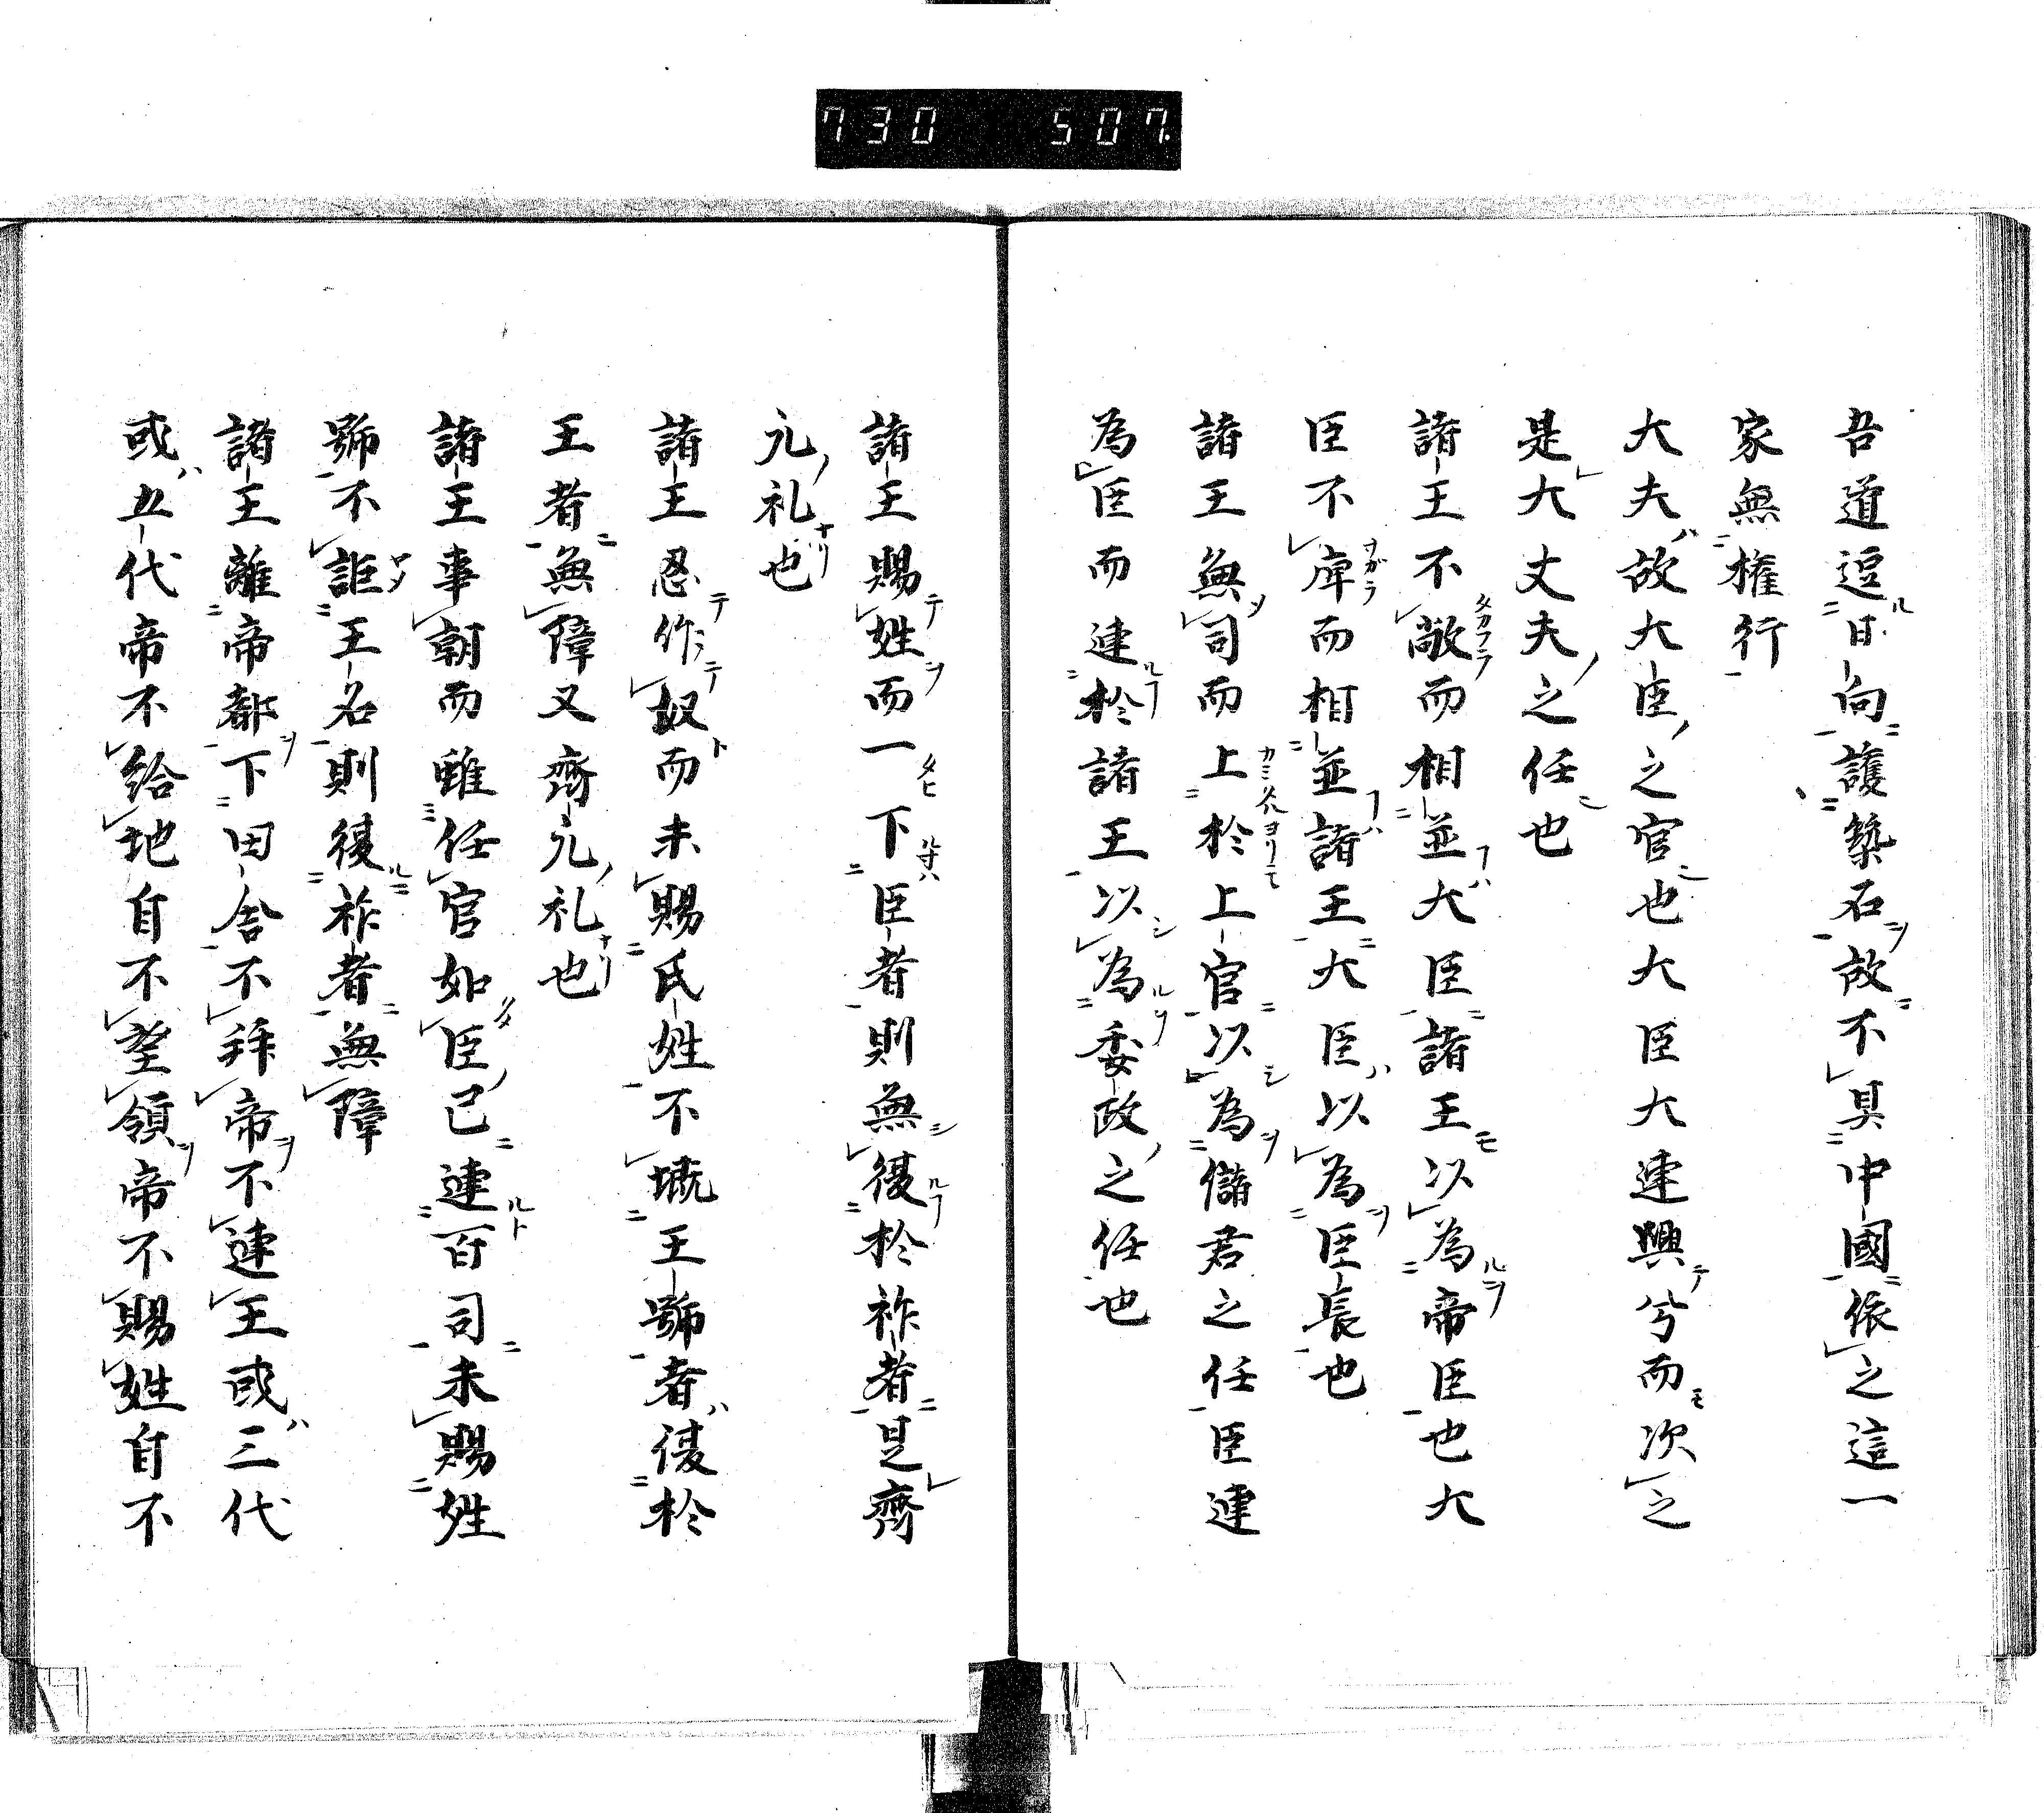 730 507.
吾道逗甘向護築石故不具中國依之這一
家無権行
大夫故大臣之官也大臣大連興兮而次之
是大丈夫之任也
諸王不敵而相並大臣諸王以為帝臣也大
臣不席而相並諸王大臣以為臣長也
諸王無司而上於上官以為儲君之任臣連
為臣而連於諸王以為委政之任也
諸王賜姓而一下臣者則無復於祚者是齊
元礼也
諸王忍作奴而未賜氏姓不堕王號者復於
王者無障又齊元礼也
諸王事朝而雖任官如臣已連百司未賜姓
號不詎王名則復祚者無障
諸王離帝都下田舎不拜帝不連王或三代
或五代帝不給地自不望領帝不賜姓自不